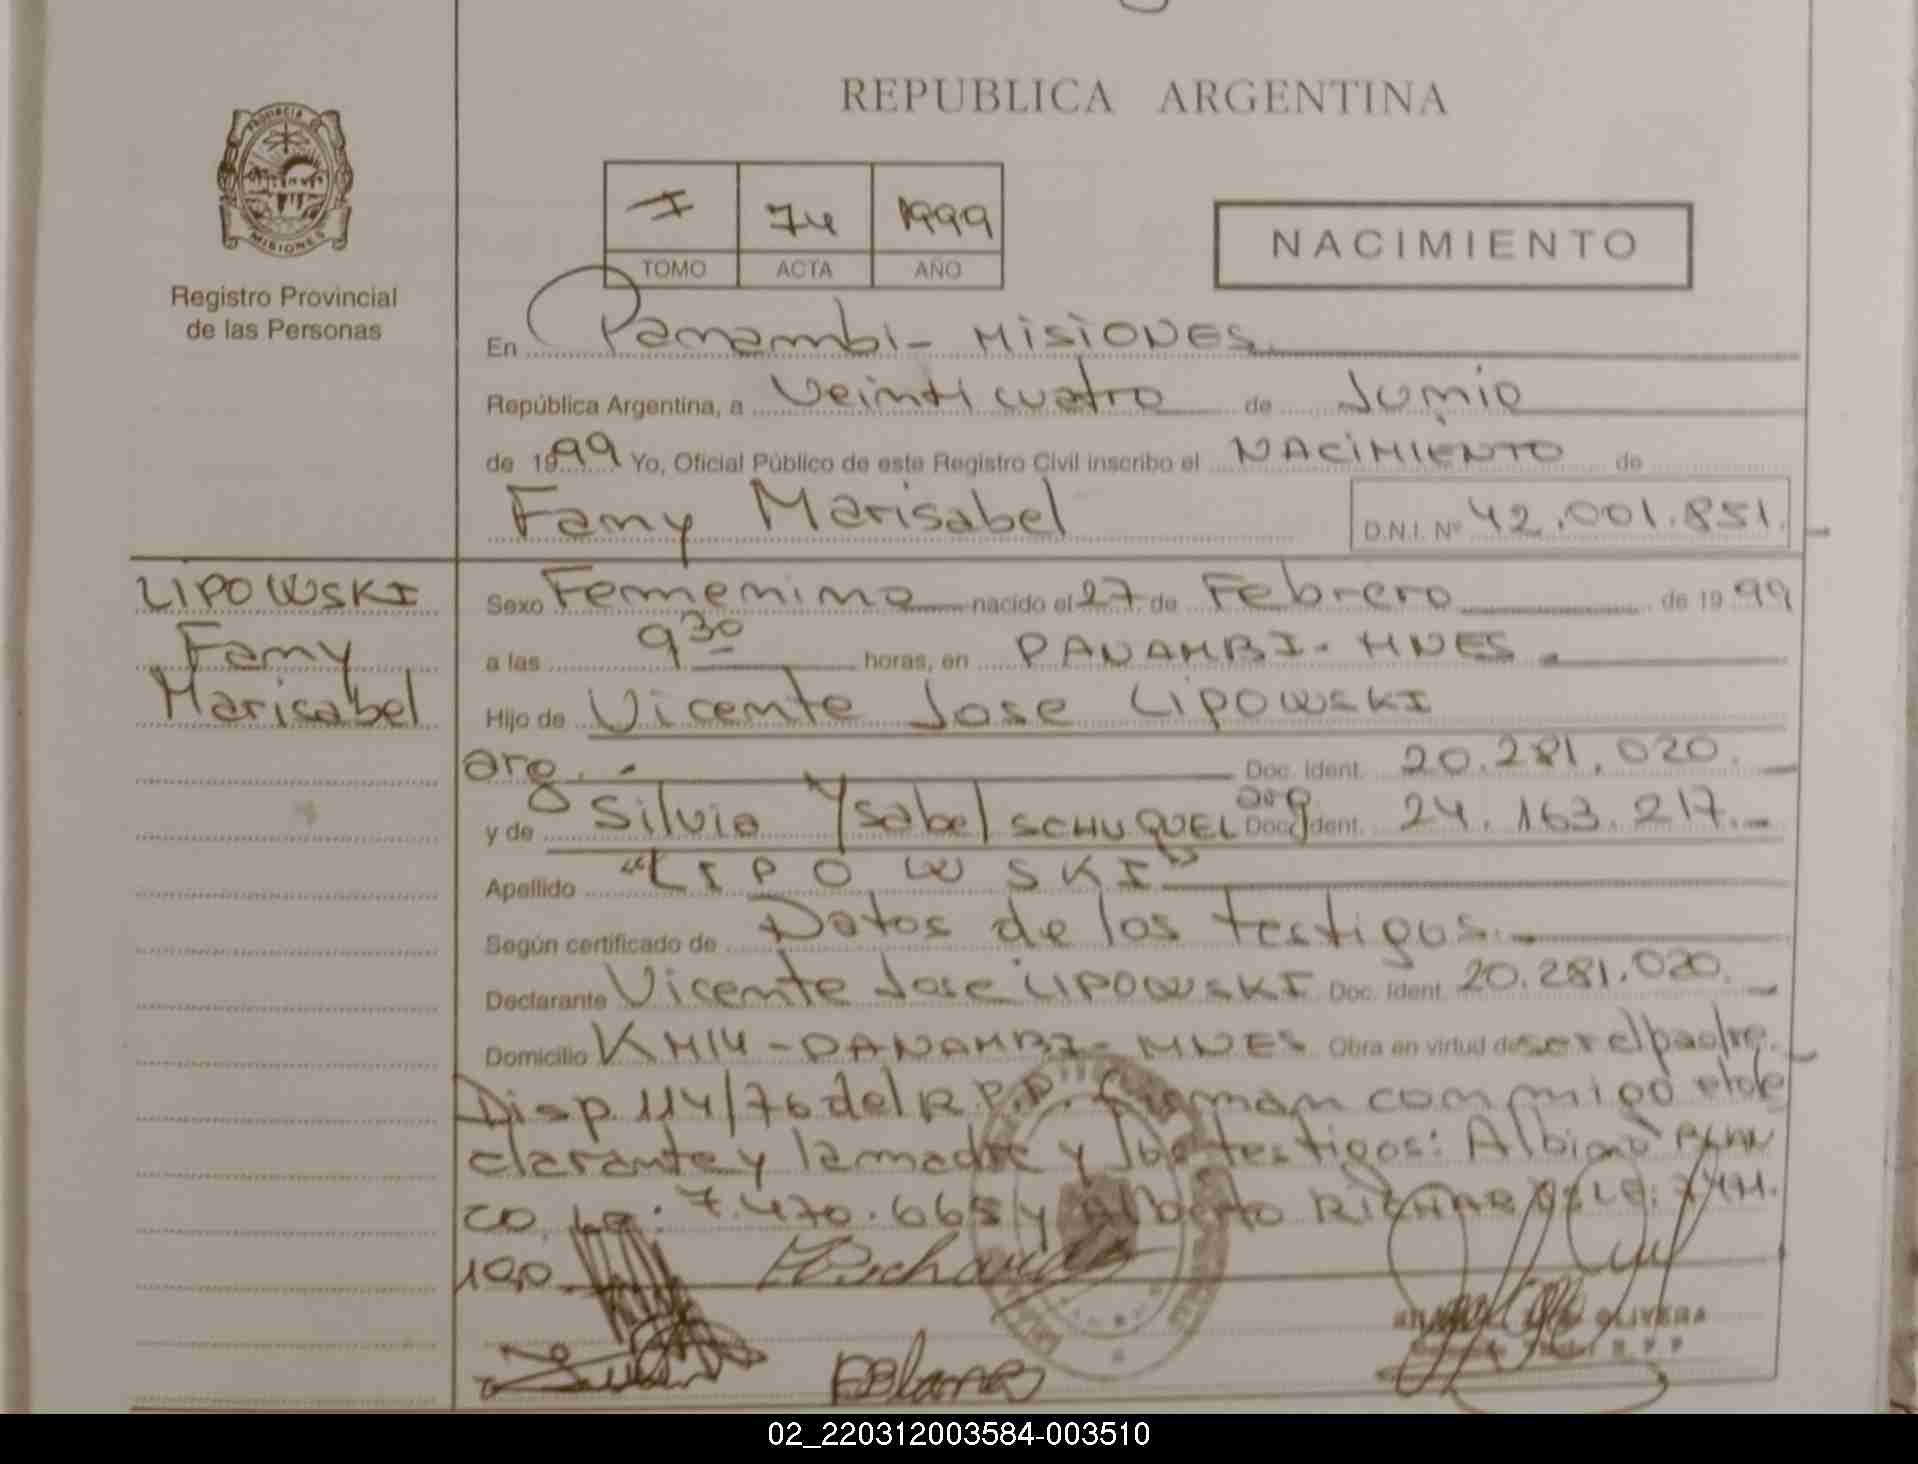 REPUBLICA ARGENTINA
PROVINCIA DE
MISIONES
Registro Provincial
de las Personas
I 74 1999
TOMO ACTA AÑO
NACIMIENTO
En Panambi - MISIONES.
República Argentina, a Veinticuatro de Junio
de 1999 Yo, Oficial Público de este Registro Civil inscribo el NACIMIENTO de
Famy Marisabel D.N.I. Nº 42.001.851.
LIPOWSKI
Famy
Marisabel
Sexo Femenino nacido el 27 de Febrero de 1999
a las 9 30 horas, en PANAMBI - MNES.
Hijo de Vicente Jose LIPOWSKI
arg. - Doc. Ident. 20.281.020.
y de Silvia Ysabel SCHUQUEL arg Doc. Ident. 24.163.217.-
Apellido "LIPOWSKI"
Según certificado de Datos de los testigos.-
Declarante Vicente Jose LIPOWSKI Doc. Ident. 20.281.020.
Domicilio KM14 - PANAMBI - MNES Obra en virtud de ser el padre.
Disp. 114/76 del R.P.P. firman conmigo el de
clarante y la madre y los testigos: Albino BLAN
CO, LE: 7.470.665 y Alberto LE: 7.471.
100
OLIVERA
R P P
02_220312003584-003510